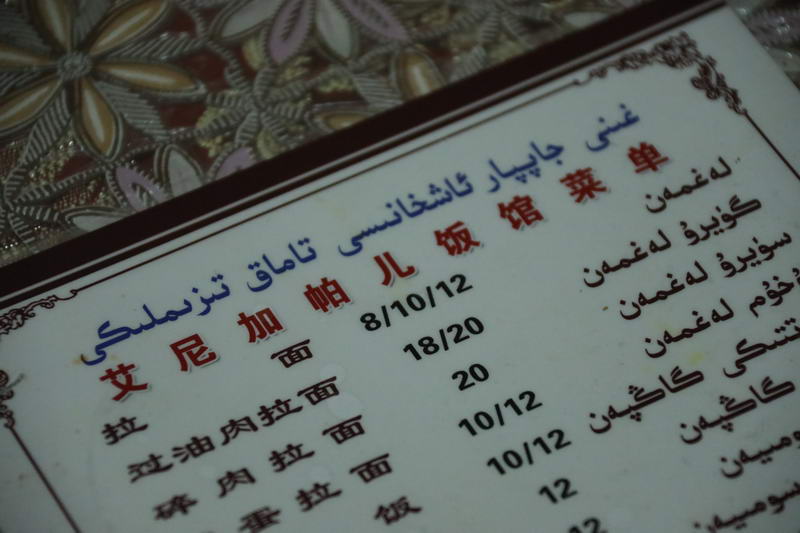 غىنى جاپپار ئاشخانىسى تاماق تىزىملىكى
艾尼加帕儿饭馆菜单
拉 面 8/10/12 لەغمەن
过油肉拉面 18/20 گۆيرۇ لەغمەن
碎肉拉面 20 سۈيرۇ لەغمەن
蛋拉面 10/12 لەغمەن
饭 10/12 گاڭپەن
12 گاڭپەن
12